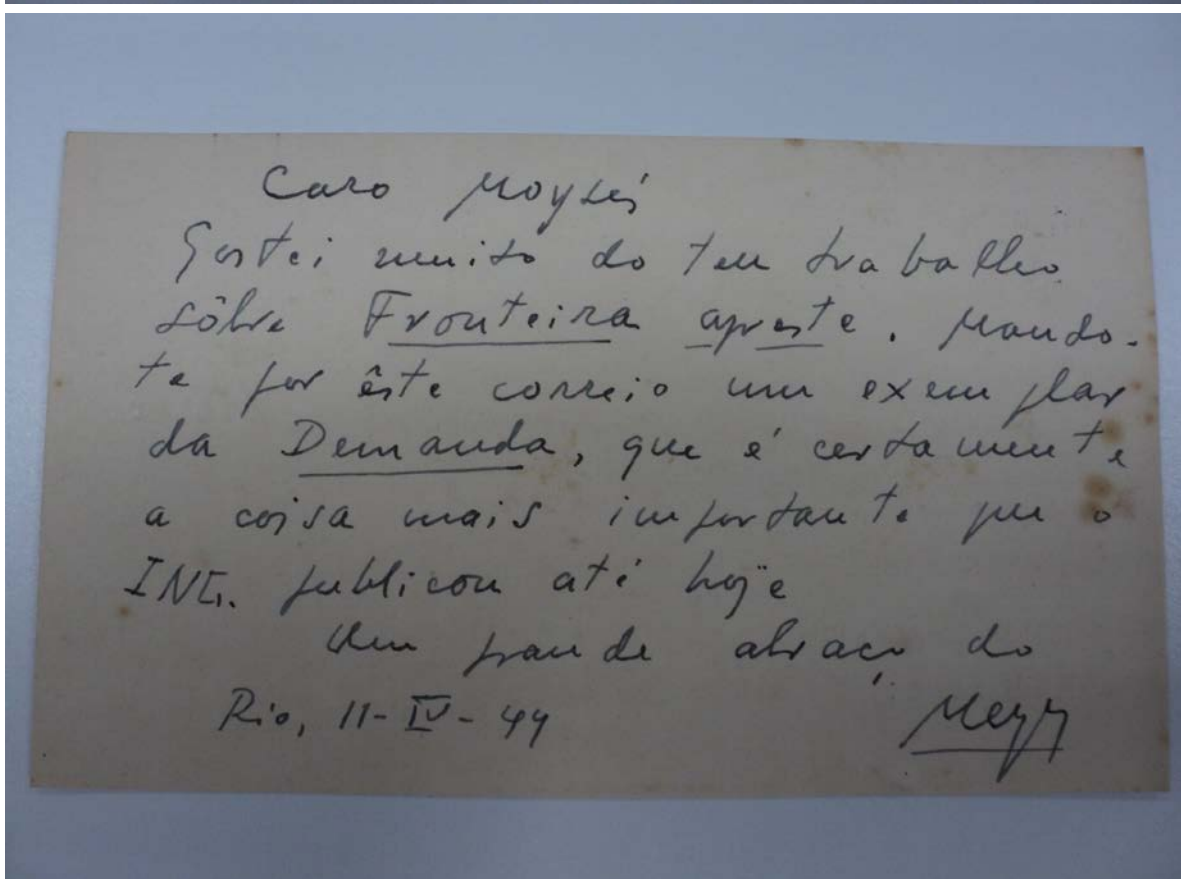 Caro Moysés
Gostei muito do teu trabalho
sôbre Fronteira agreste. Mando-
te por êste correio um exemplar
da Demanda, que é certamente
a coisa mais importante que o
INL. publicou até hoje
Um grande abraço do
Rio, 11-IV-44 Meyer